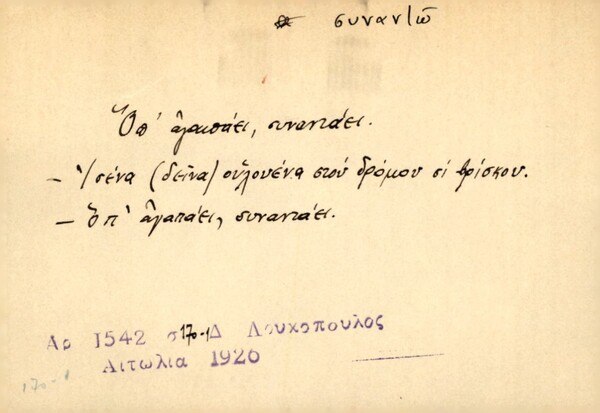 συναντῶ
Ὅπ' ἀγαπάει, συναντάει.
– Ἰσένα (δεῖνα) οὑλουένα στοὺ δρόμου σὶ βρίσκου.
– Ὅπ' ἀγαπάει, συναντάει.
Αρ 1542 σ 170-1 Δ Λουκοπουλος
Αιτωλια 1926
170-1